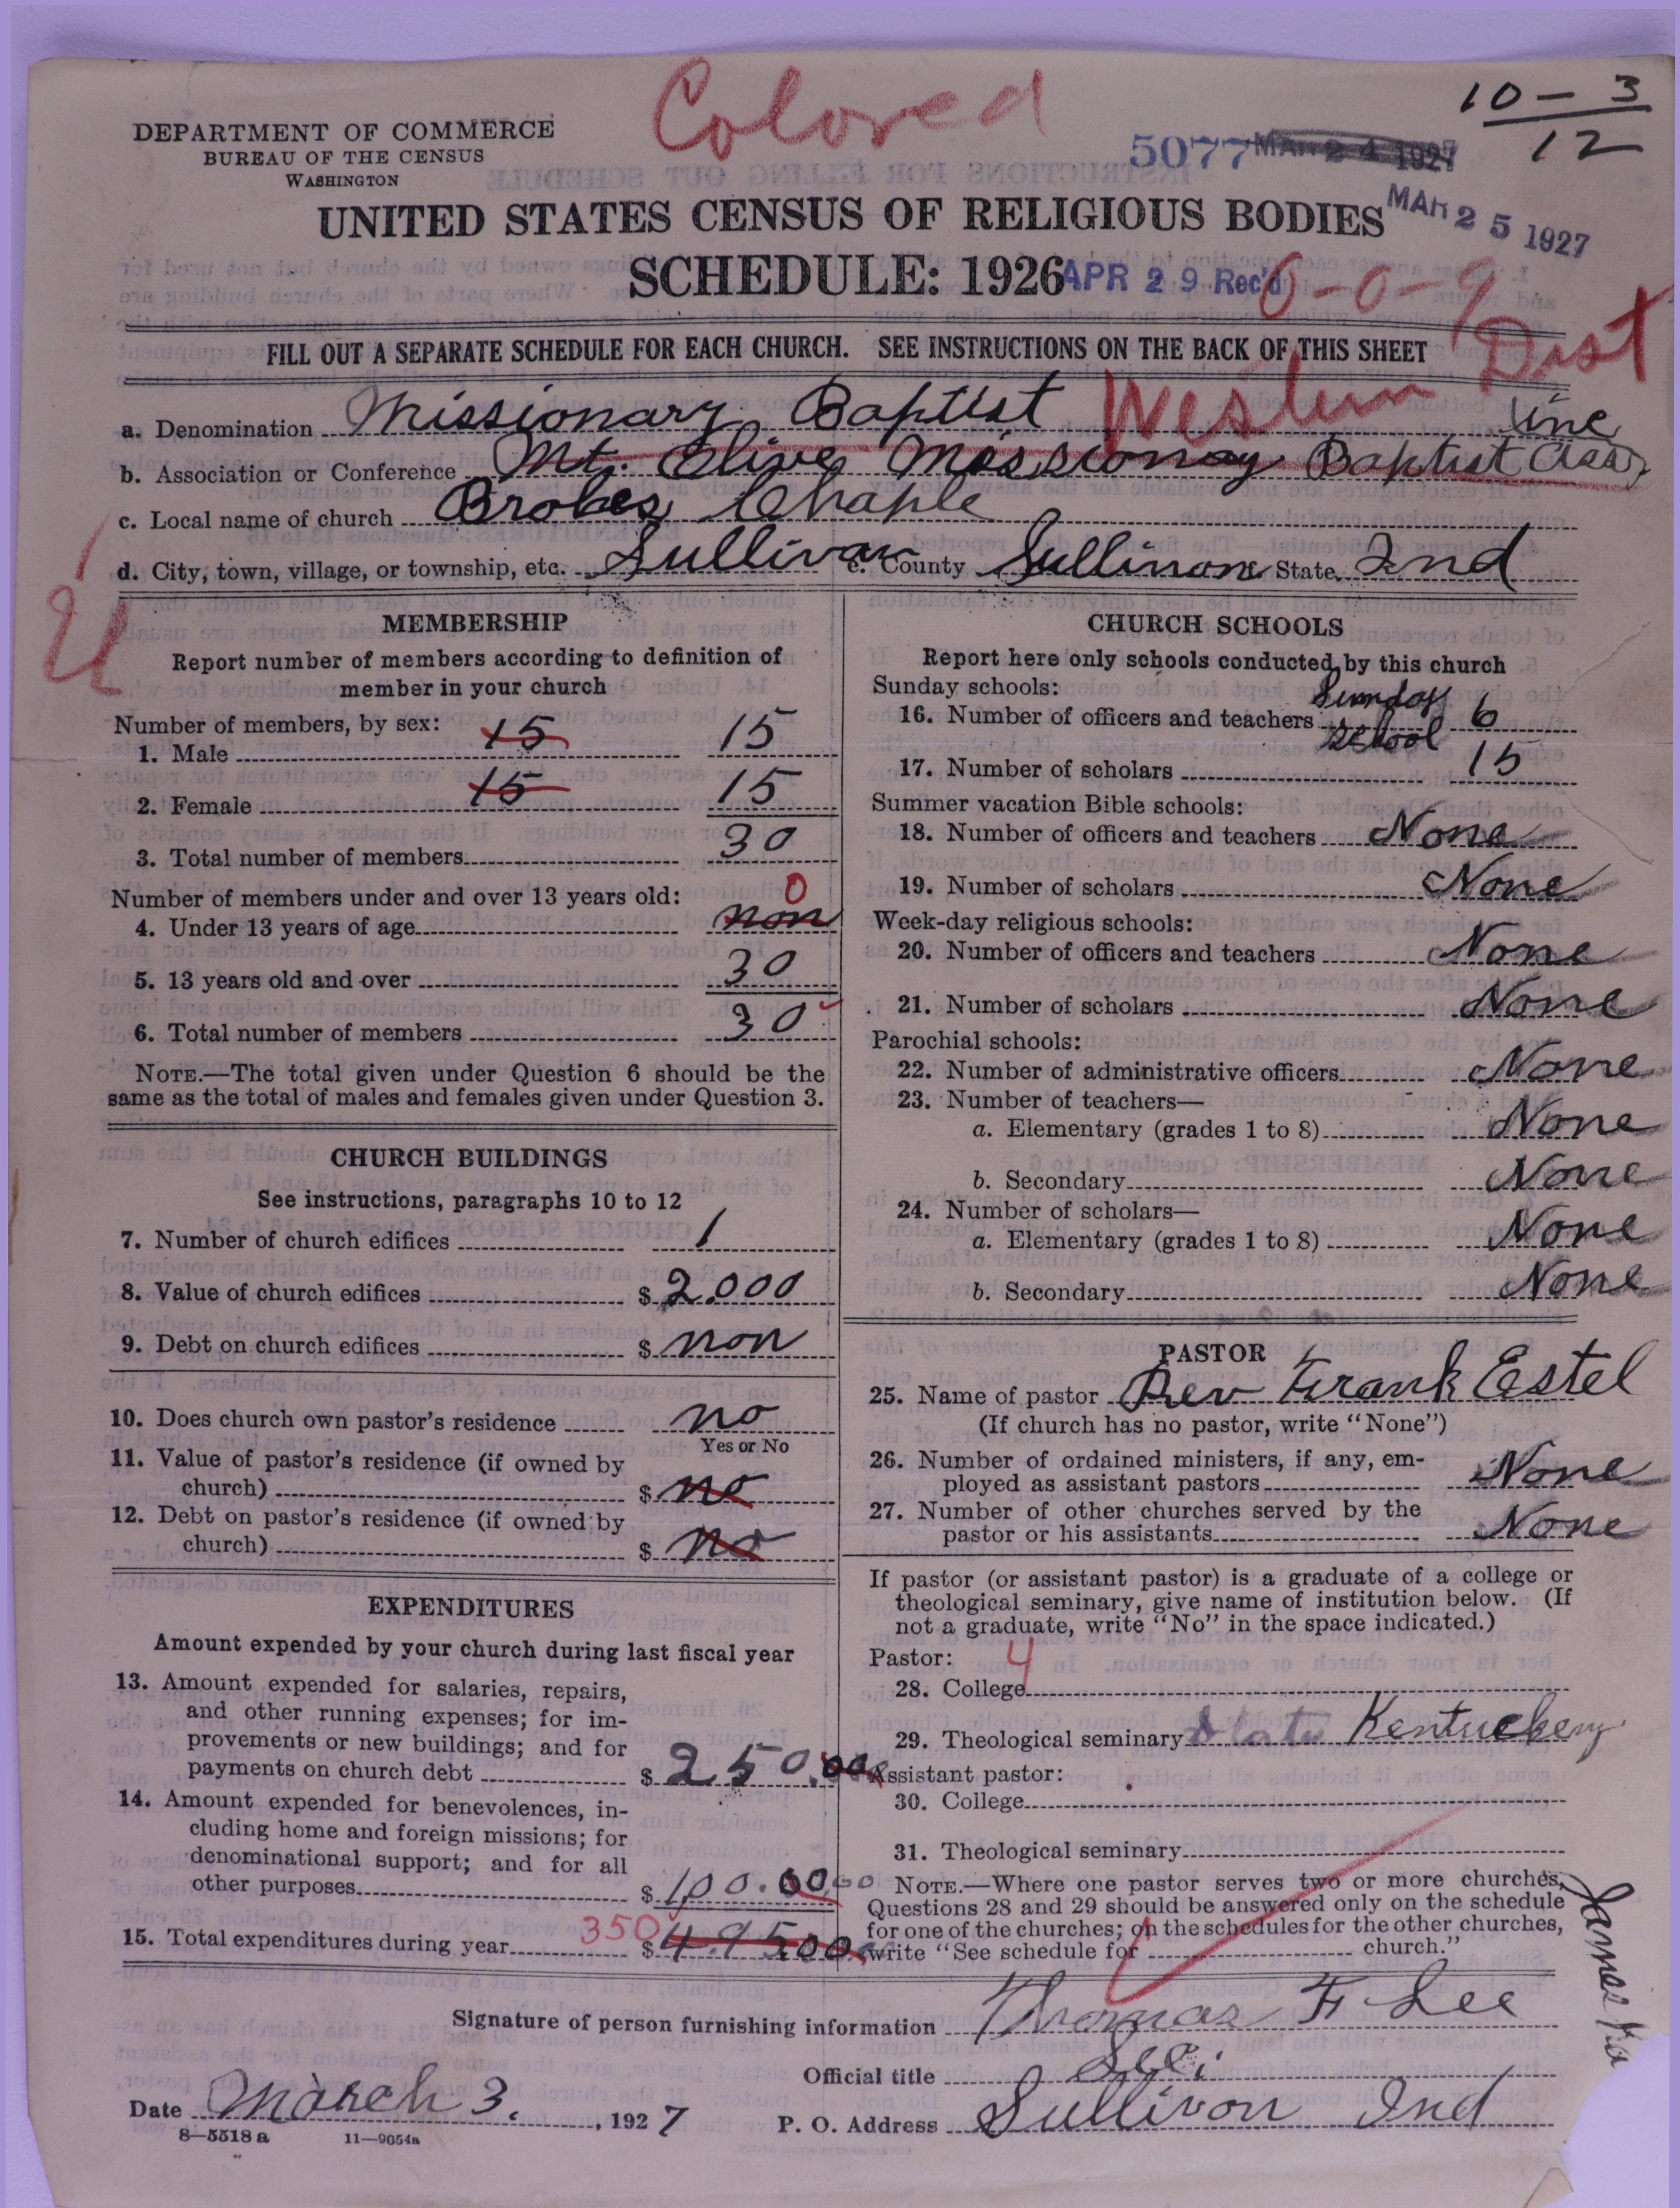 Colored
10 – 3
12
DEPARTMENT OF COMMERCE
BUREAU OF THE CENSUS
WASHINGTON
5077 MAR 24 1927
MAR 25 1927
UNITED STATES CENSUS OF RELIGIOUS BODIES
SCHEDULE: 1926
APR 29 Rec'd
0-0-9
FILL OUT A SEPARATE SCHEDULE FOR EACH CHURCH. SEE INSTRUCTIONS ON THE BACK OF THIS SHEET
Western Dist
a. Denomination Missionary Baptist
b. Association or Conference Mt. Olive Missionary Baptist Ass
c. Local name of church Brobes Chaple
d. City, town, village, or township, etc. Sullivan e. County Sullivan State Ind
MEMBERSHIP
Report number of members according to definition of
member in your church
Number of members, by sex:
1. Male 15 15
2. Female 15 15
3. Total number of members 30
Number of members under and over 13 years old: 0
4. Under 13 years of age non
5. 13 years old and over 30
6. Total number of members 30
NOTE.—The total given under Question 6 should be the
same as the total of males and females given under Question 3.
CHURCH BUILDINGS
See instructions, paragraphs 10 to 12
7. Number of church edifices 1
8. Value of church edifices $ 2.000
9. Debt on church edifices $ non
10. Does church own pastor's residence no
Yes or No
11. Value of pastor's residence (if owned by
church) $ no
12. Debt on pastor's residence (if owned by
church) $ no
EXPENDITURES
Amount expended by your church during last fiscal year
13. Amount expended for salaries, repairs,
and other running expenses; for im-
provements or new buildings; and for
payments on church debt $ 250.00
14. Amount expended for benevolences, in-
cluding home and foreign missions; for
denominational support; and for all
other purposes $ 100.00
15. Total expenditures during year 350 $ 495.00
CHURCH SCHOOLS
Report here only schools conducted by this church
Sunday schools:
16. Number of officers and teachers Sunday school 6
17. Number of scholars 15
Summer vacation Bible schools:
18. Number of officers and teachers None
19. Number of scholars None
Week-day religious schools:
20. Number of officers and teachers None
21. Number of scholars None
Parochial schools:
22. Number of administrative officers None
23. Number of teachers—
a. Elementary (grades 1 to 8) None
b. Secondary None
24. Number of scholars—
a. Elementary (grades 1 to 8) None
b. Secondary None
PASTOR
25. Name of pastor Rev Frank Estel
(If church has no pastor, write "None")
26. Number of ordained ministers, if any, em-
ployed as assistant pastors None
27. Number of other churches served by the
pastor or his assistants None
If pastor (or assistant pastor) is a graduate of a college or
theological seminary, give name of institution below. (If
not a graduate, write "No" in the space indicated.)
Pastor: 4
28. College
29. Theological seminary State Kentuckeny
Assistant pastor:
30. College
31. Theological seminary
NOTE.—Where one pastor serves two or more churches,
Questions 28 and 29 should be answered only on the schedule
for one of the churches; on the schedules for the other churches,
write "See schedule for church."
James
Signature of person furnishing information Thomas F Lee
Official title Seci
Date March 3, 1927 P. O. Address Sullivon Ind
8—5518 a 11—9054a